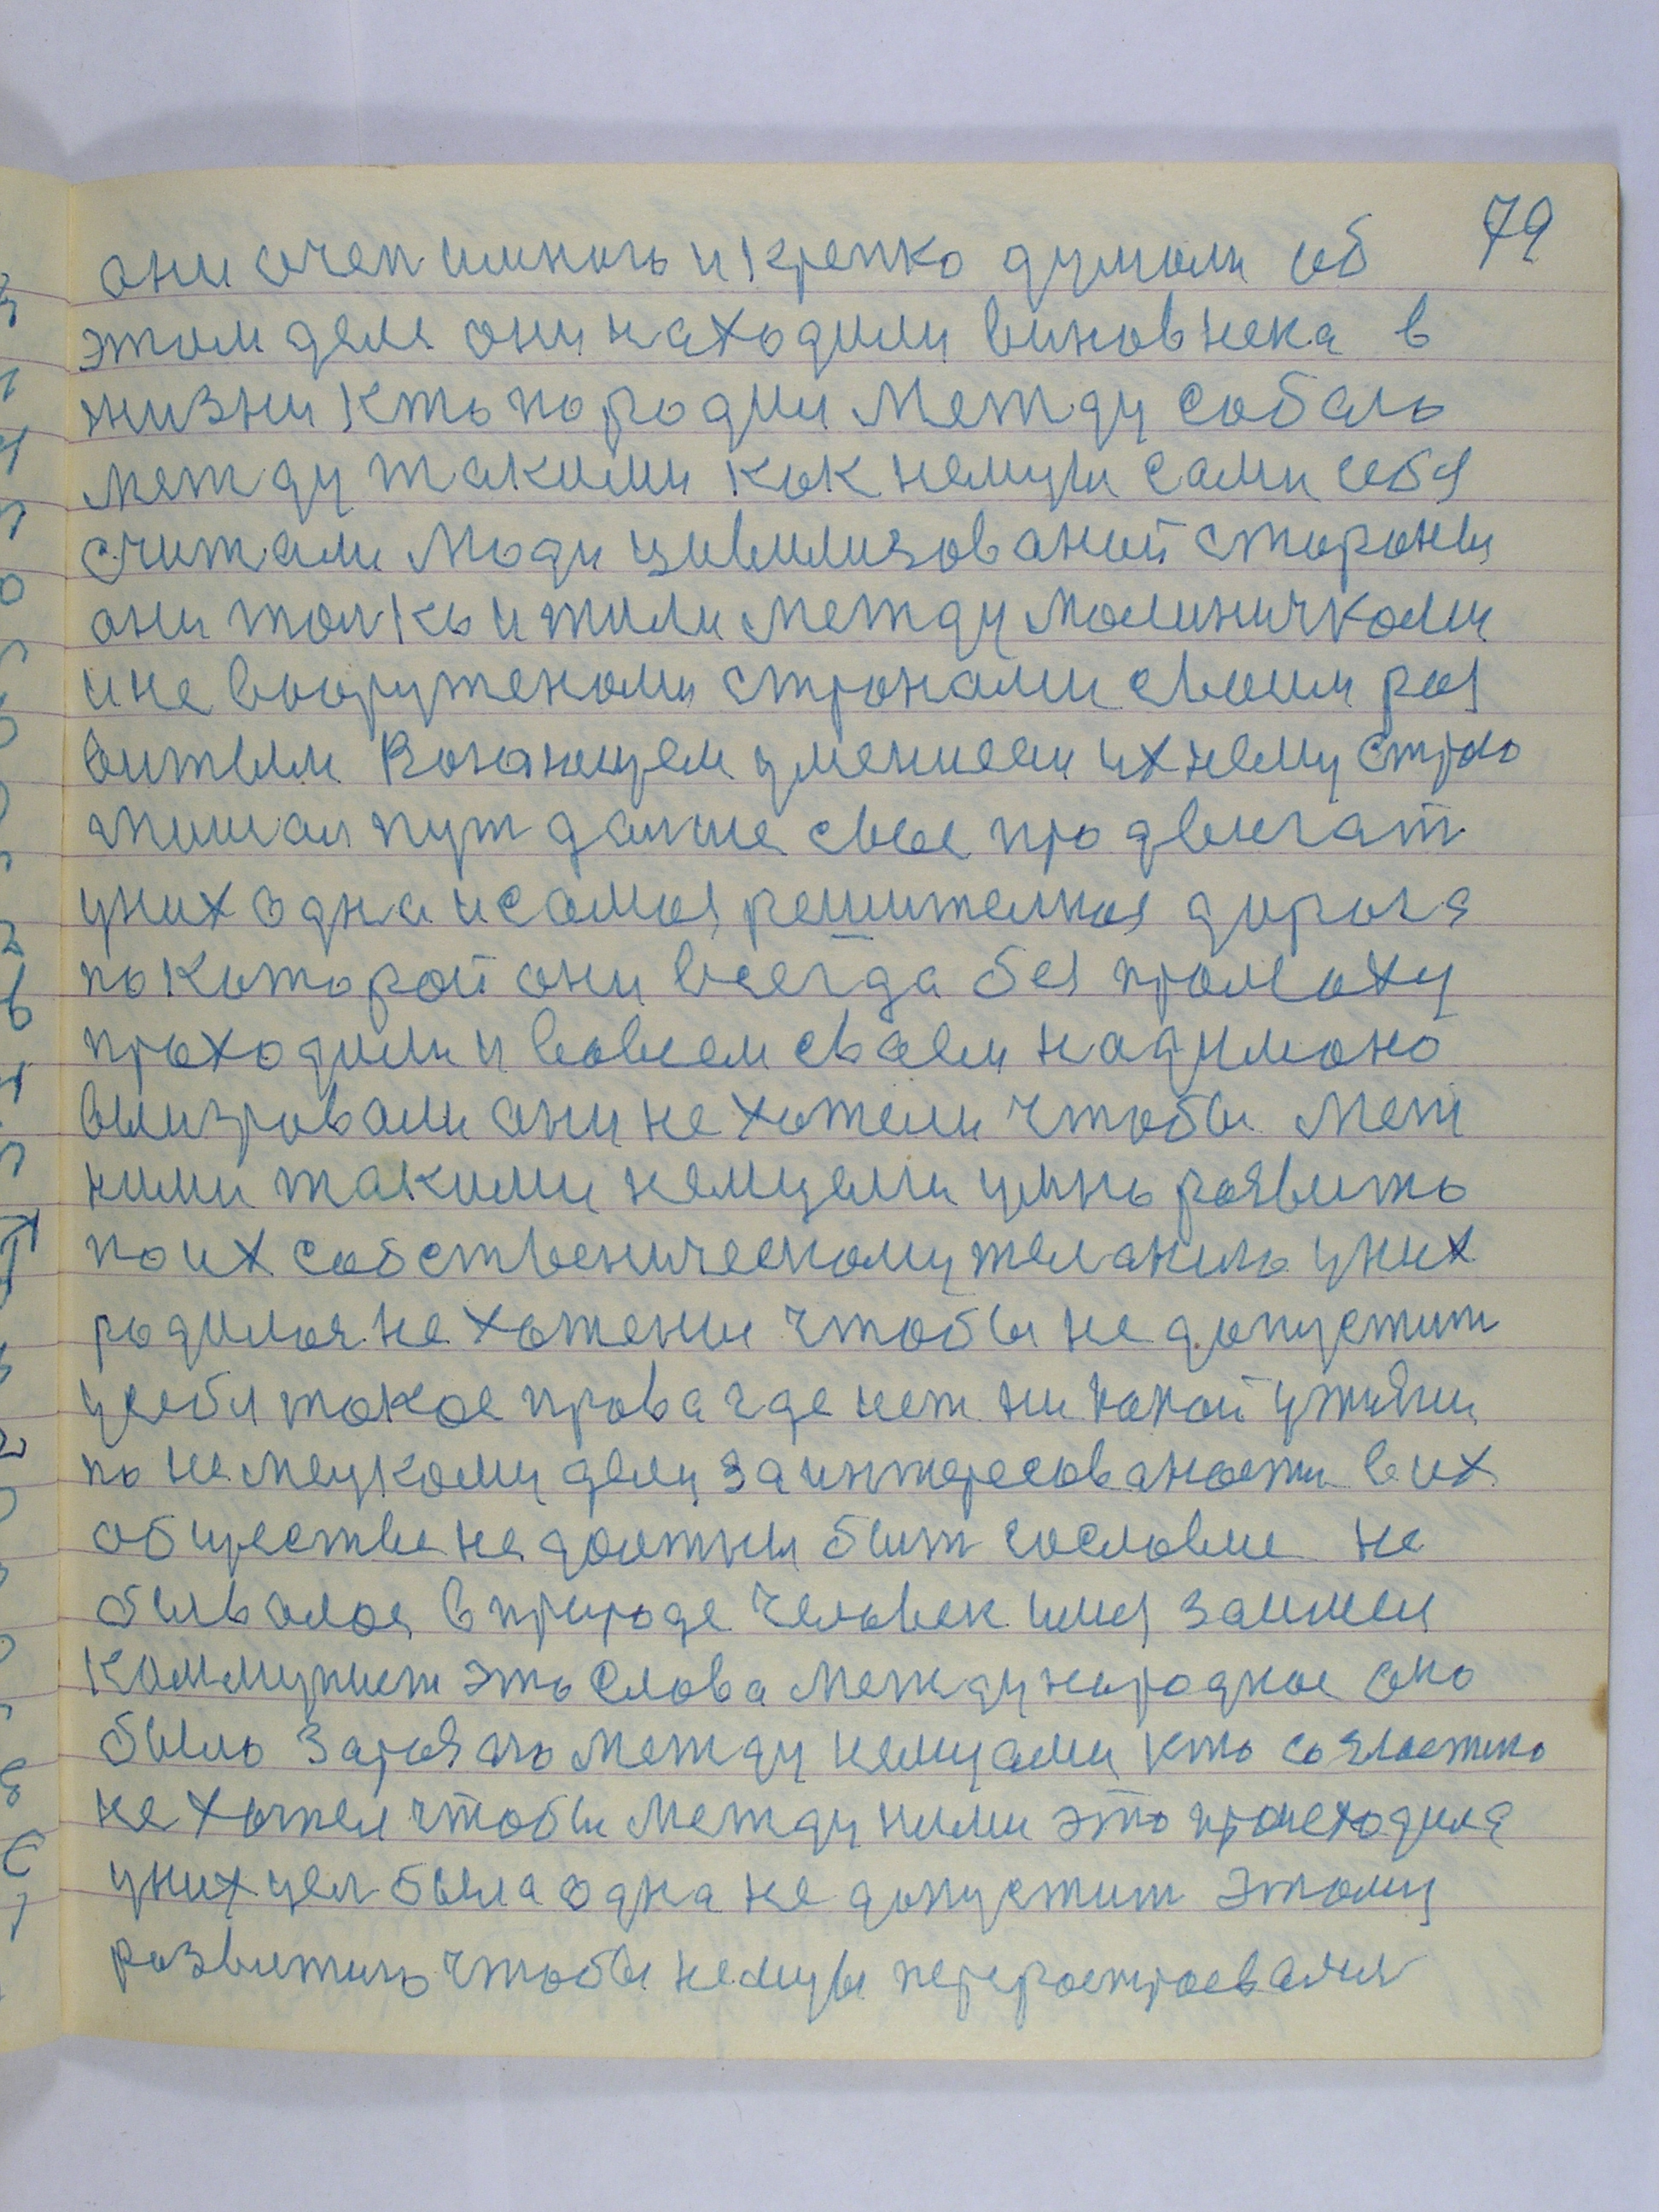 79
они очен имногь и крепко думали об
этом деле они находили виновнека в
жизни кть породил Между собаль
между такими как немцы сами себя
считали люди цивилизованой стороны
они тольк и жили между малиничкоми
ине вооруженоми стронами своим раз
витьем умением ихнему стро
жишая пут дальше свое продвигат
уних одна и самая решителная дорога
по которой они всегда без промаху
проходили и вовсем своем надумоно
они не хотели чтобы Меж
ними такими немцами умнь развить
по их собственическому желанию уних
родилоя не хотение чтобы не допустит
усебя токое права где нет ни какой
по немецкому делу заинтересованости в их
обществе не должны быт сословие не
бывалоя в природе человек имя занжея
Коммунист это слова Международное оно
быль между немцами кть
не хотел чтобы Между ними это происходила
уних цел была одна не допустит этому
развитию чтобы немцы перестроевался